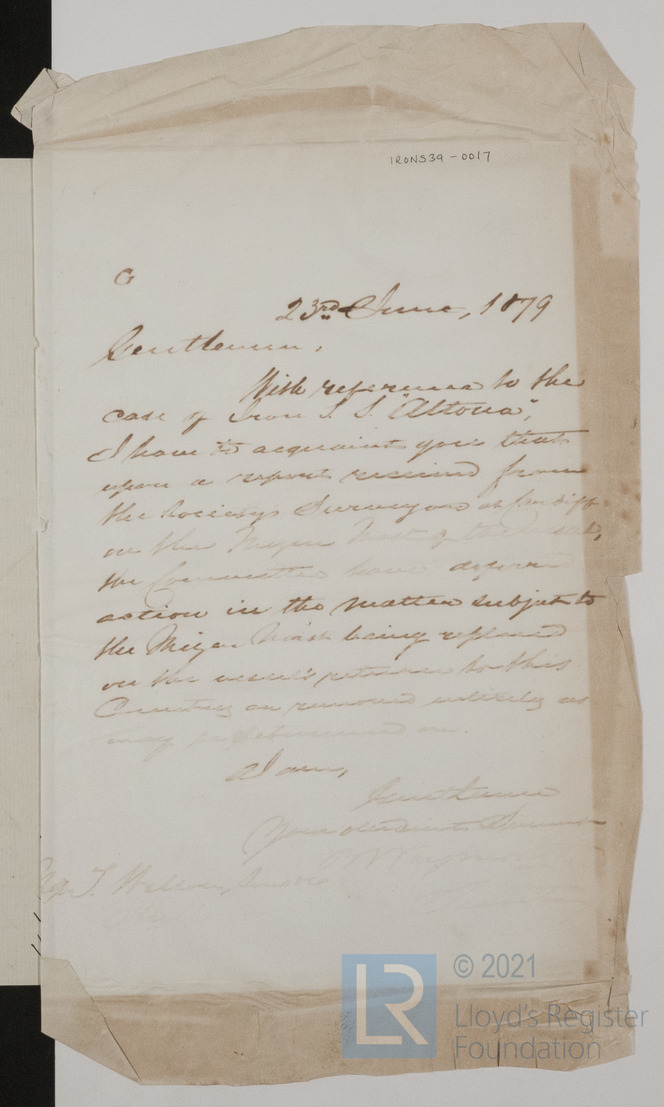 IRONS39-0017
G
23rd June, 1879
Gentlemen,
With reference to the
case of Iron S. S. "Altona",
I have to acquaint you that
upon a report received from
the Society's Surveyors at Cardiff
on the Mizen Mast of this
the Committee have deferred
action in the matter subject to
the Mizen Mast being replaced
on the vessel's return to this
Country or removed entirely as
may be determined on.
I am,
Gentlemen
Your obedient Servant
T. Wilson, Sons &
Hull
© 2021
LR
Lloyd's Register
Foundation